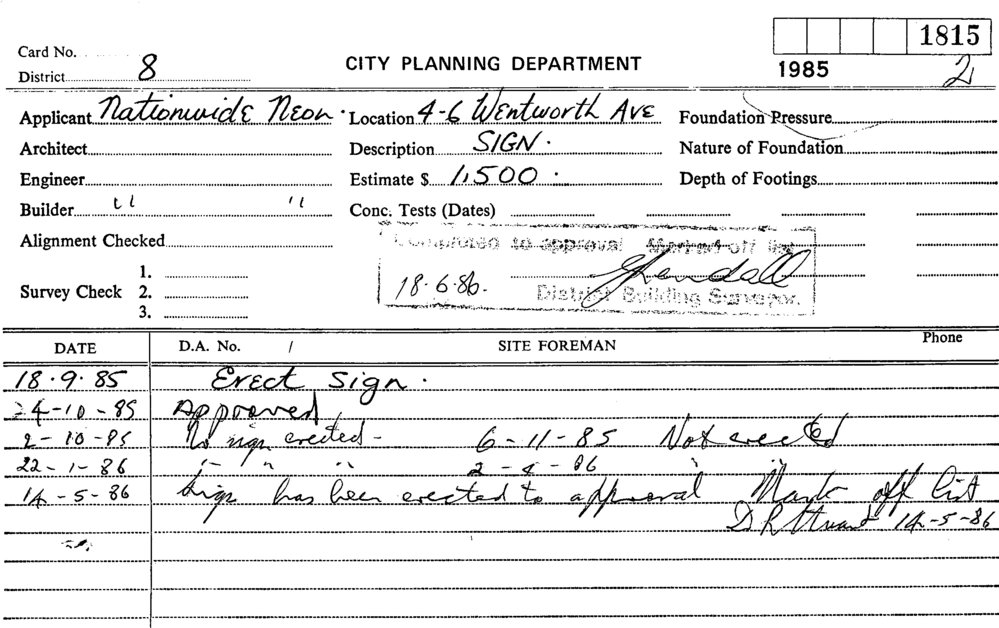 1815
Card No.
CITY PLANNING DEPARTMENT
1985 2
District 8
Applicant Nationwide Neon. Location 4-6 Wentworth Ave Foundation Pressure
Architect Description SIGN. Nature of Foundation
Engineer Estimate $ 1,500. Depth of Footings
Builder " " Conc. Tests (Dates)
Alignment Checked Completed to approval Marked off list
Survey Check 1.
2. 18-6-86. District Building Surveyor.
3.
DATE D.A. No. / SITE FOREMAN Phone
18.9.85 Erect Sign.
4-10-85 Approved
2-10-85 No sign erected - 6-11-85 Not erected
22-1-86 " " " 2-4-86 " "
14-5-86 Sign has been erected to approval Mark off list
14-5-86